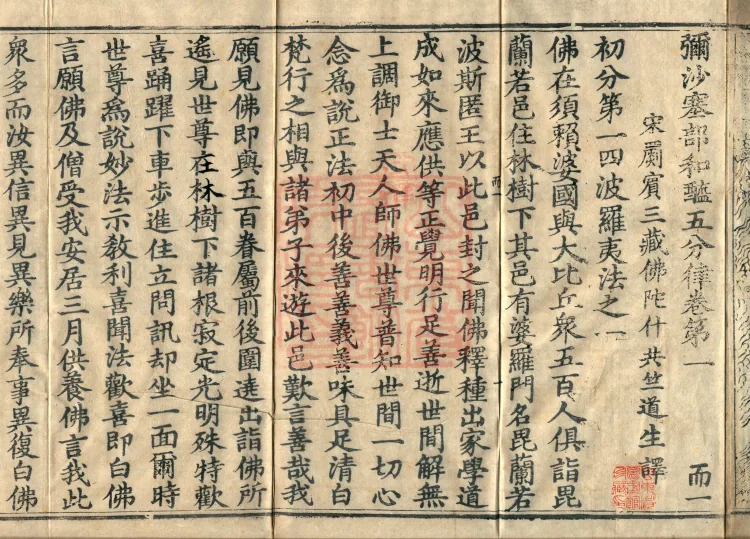 彌沙塞部和醯五分律卷第一 而一
宋罽賓三藏佛陀什共竺道生譯
初分第一四波羅夷法之一
佛在須賴婆國與大比丘衆五百人俱詣毘
蘭若邑住林樹下其邑有婆羅門名毘蘭若
波斯匿王以此邑封之聞佛釋種出家學道
成如來應供等正覺明行足善逝世間解無
上調御士天人師佛世尊普知世間一切心
念爲說正法初中後善善義善味具足清白
梵行之相與諸弟子來遊此邑歎言善哉我
願見佛即與五百眷屬前後圍遶出詣佛所
遙見世尊在林樹下諸根寂定光明殊特歡
喜踊躍下車步進住立問訊却坐一面爾時
世尊爲說妙法示教利喜聞法歡喜即白佛
言願佛及僧受我安居三月供養佛言我此
衆多而汝異信異見異樂所奉事異復白佛